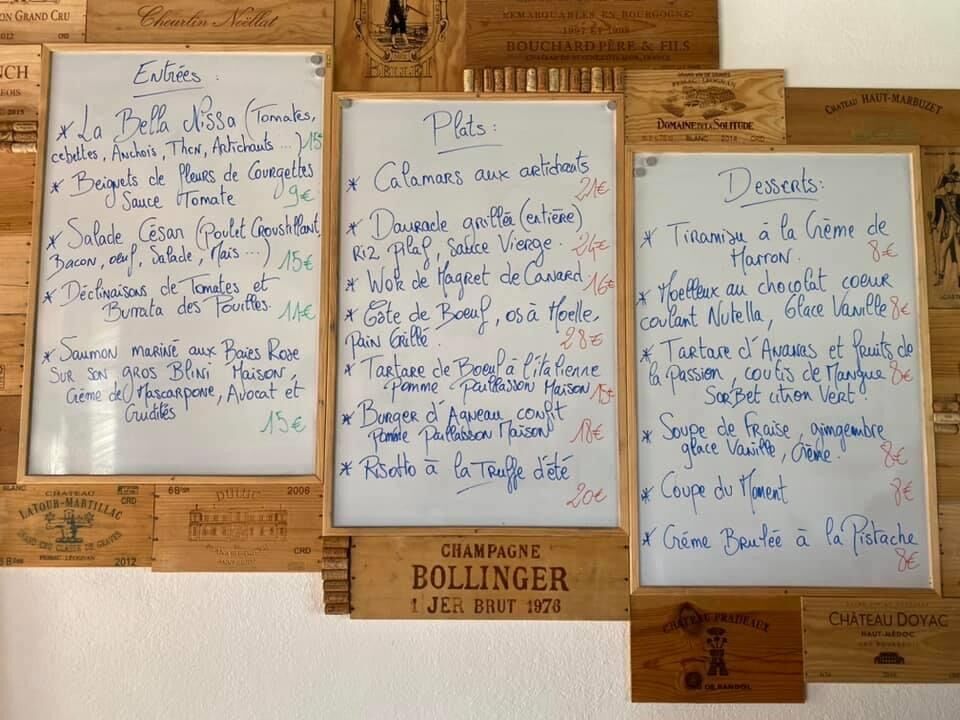 ON GRAND CRU
Cheurlin Noëllat
2012
NCH
FOIS
2015
REMARQUABLES EN BOURGOGNE
BOUCHARD PÈRE & FILS
DOMAINE DE LA SOLITUDE
CHATEAU HAUT-MARBUZET
Entrées :
* La Bella Nissa (Tomates,
cebettes, Anchois, Thon, Artichauts ...) 15€
* Beignets de fleurs de Courgettes
Sauce Tomate 9€
* Salade César (Poulet Croustillant,
Bacon, oeuf, Salade, Maïs ...) 15€
* Déclinaisons de Tomates et
Burrata des Pouilles. 11€
* Saumon mariné aux Baies Rose
Sur son gros Blini Maison,
Crème de Mascarpone, Avocat et
Crudités 15€
Plats :
* Calamars aux artichauts
21€
* Daurade grillée (entière)
Riz Pilaf, Sauce Vierge. 24€
* Wok de Magret de Canard 16€
* Côte de Boeuf, os à Moelle,
Pain Grillé. 28€
* Tartare de Boeuf à l'italienne
Pomme Paillasson Maison 15€
* Burger d'Agneau confit
Pomme Paillasson Maison 18€
* Risotto à la Truffe d'été
20€
Desserts :
* Tiramisu à la Crème de
Marron. 8€
* Moelleux au chocolat coeur
coulant Nutella, Glace Vanille 8€
* Tartare d'Ananas et fruits de
la Passion, coulis de Mangue 8€
Sorbet citron Vert.
* Soupe de Fraise, gimgembre
glace Vanille, Crème. 8€
* Coupe du Moment 8€
* Crème Brulée à la Pistache
8€
CHATEAU
LATOUR-MARTILLAC
GRAND CRU CLASSÉ DE GRAVES
PESSAC LÉOGNAN
2012
CRD
DULUC
2006
CRD
CHAMPAGNE
BOLLINGER
1 JER BRUT 1976
CHATEAU PRADEAUX
CHÂTEAU DOYAC
HAUT-MÉDOC